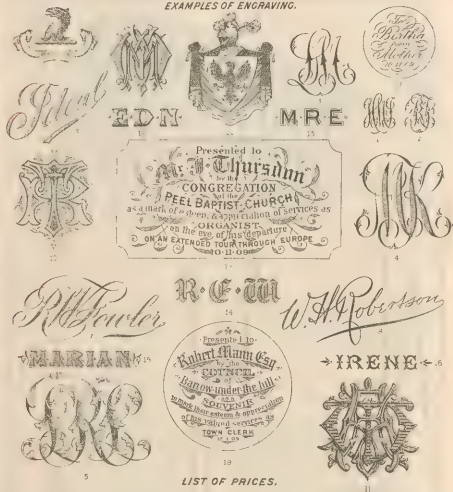 EXAMPLES OF ENGRAVING.
To
Bertha
from
Mother
Ideal
E·D·N
M·R·E
Presented to
Mr. J. Thursdon
by the
CONGREGATION
of the
PEEL BAPTIST CHURCH
as a mark of a deep & appreciation of services as
ORGANIST
on the eve of his departure
ON AN EXTENDED TOUR THROUGH EUROPE
10·11·09
4
R·E·W
14
R.W. Fowler
W.H. Robertson
MARIAN
IRENE
Presented to
Robert Mann Esq
by the
COUNCIL
of
Barrow-under-the-hill
as a
SOUVENIR
to mark their esteem & appreciation
of his valued services as
TOWN CLERK
5
19
11
LIST OF PRICES.